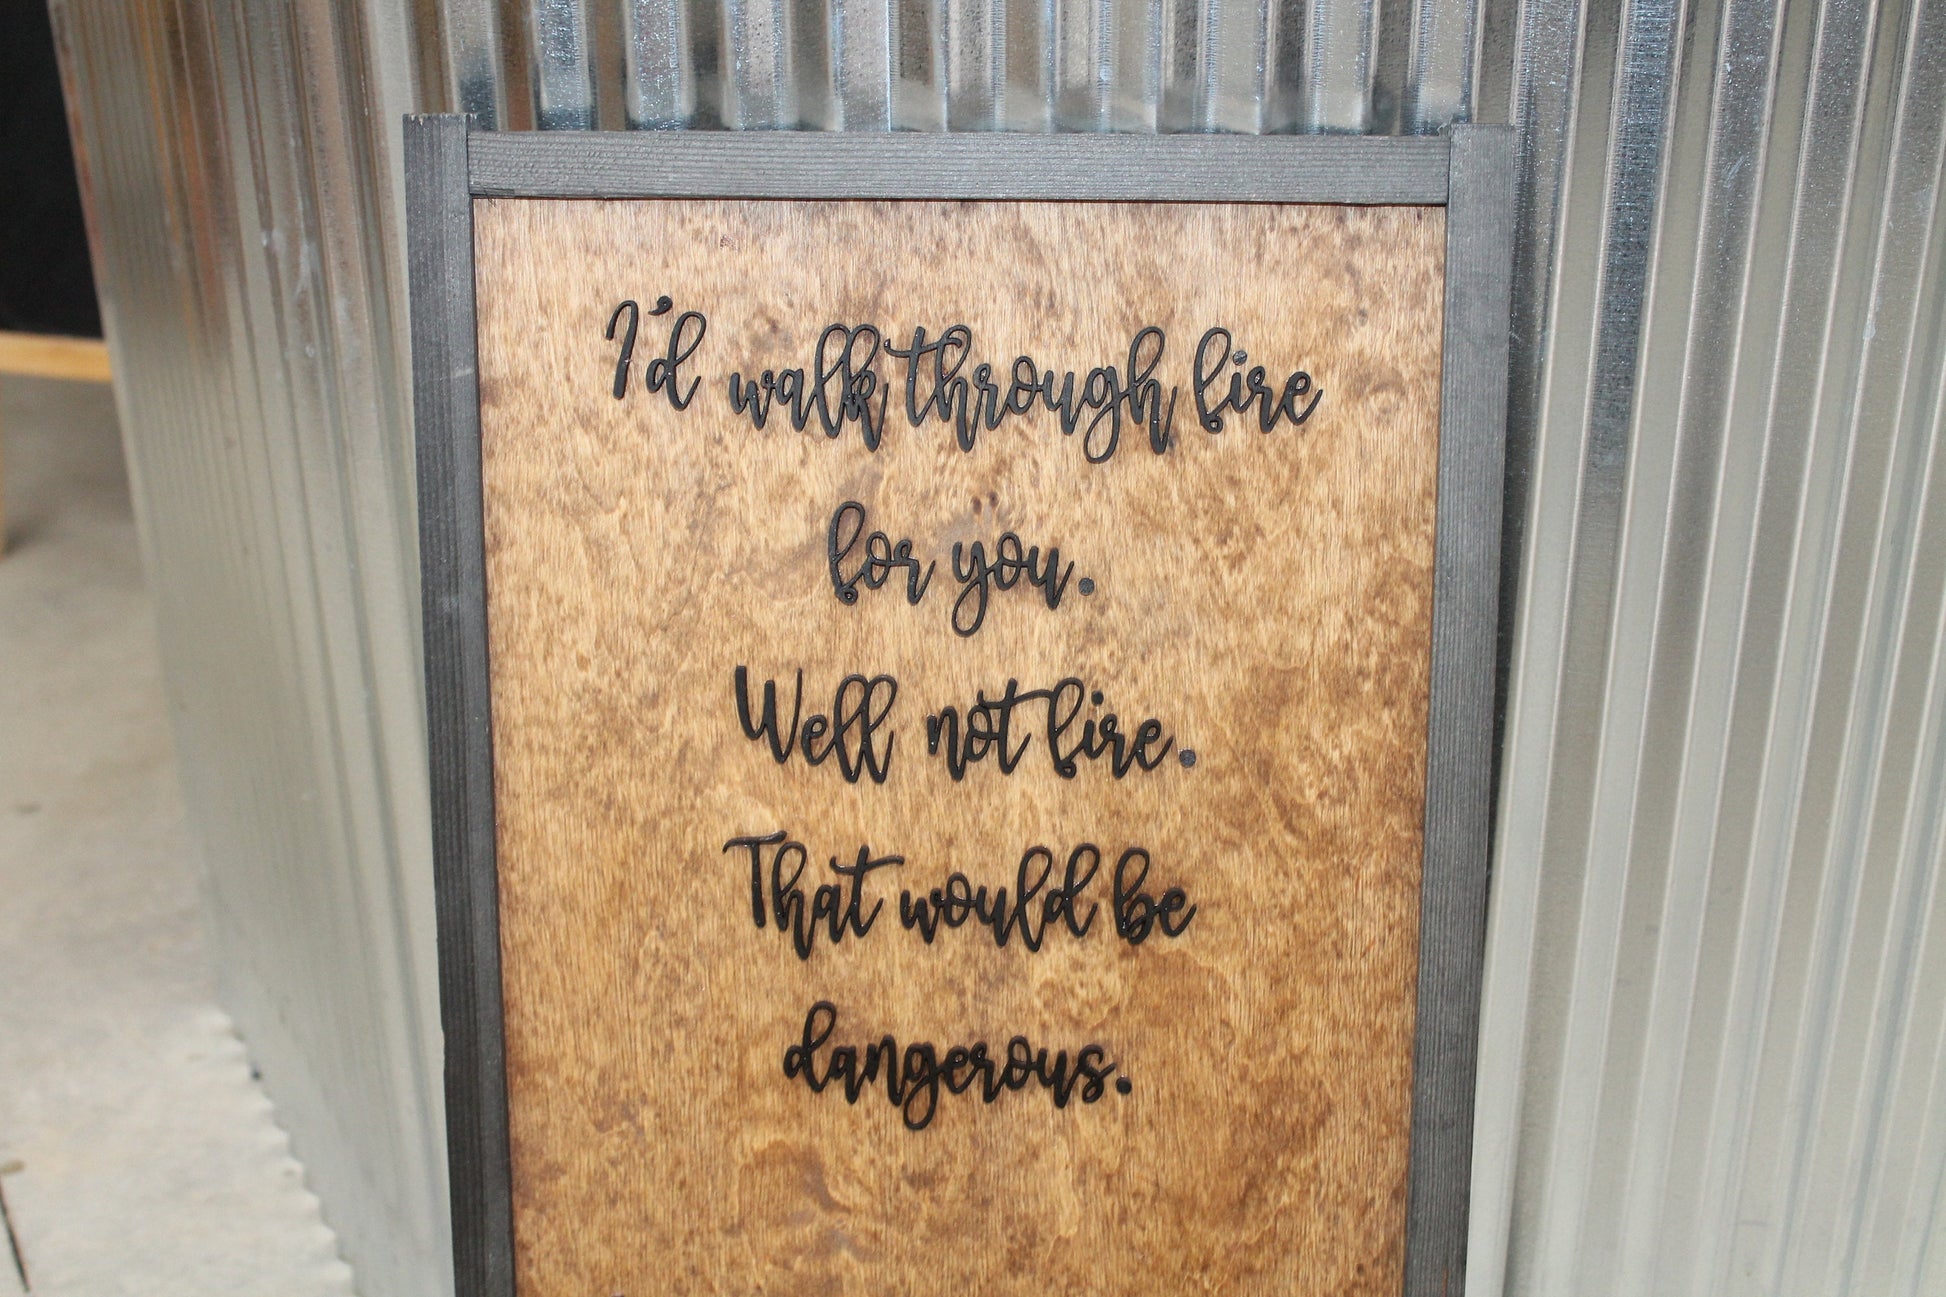 I'd walk through fire
for you.
Well not fire.
That would be
dangerous.